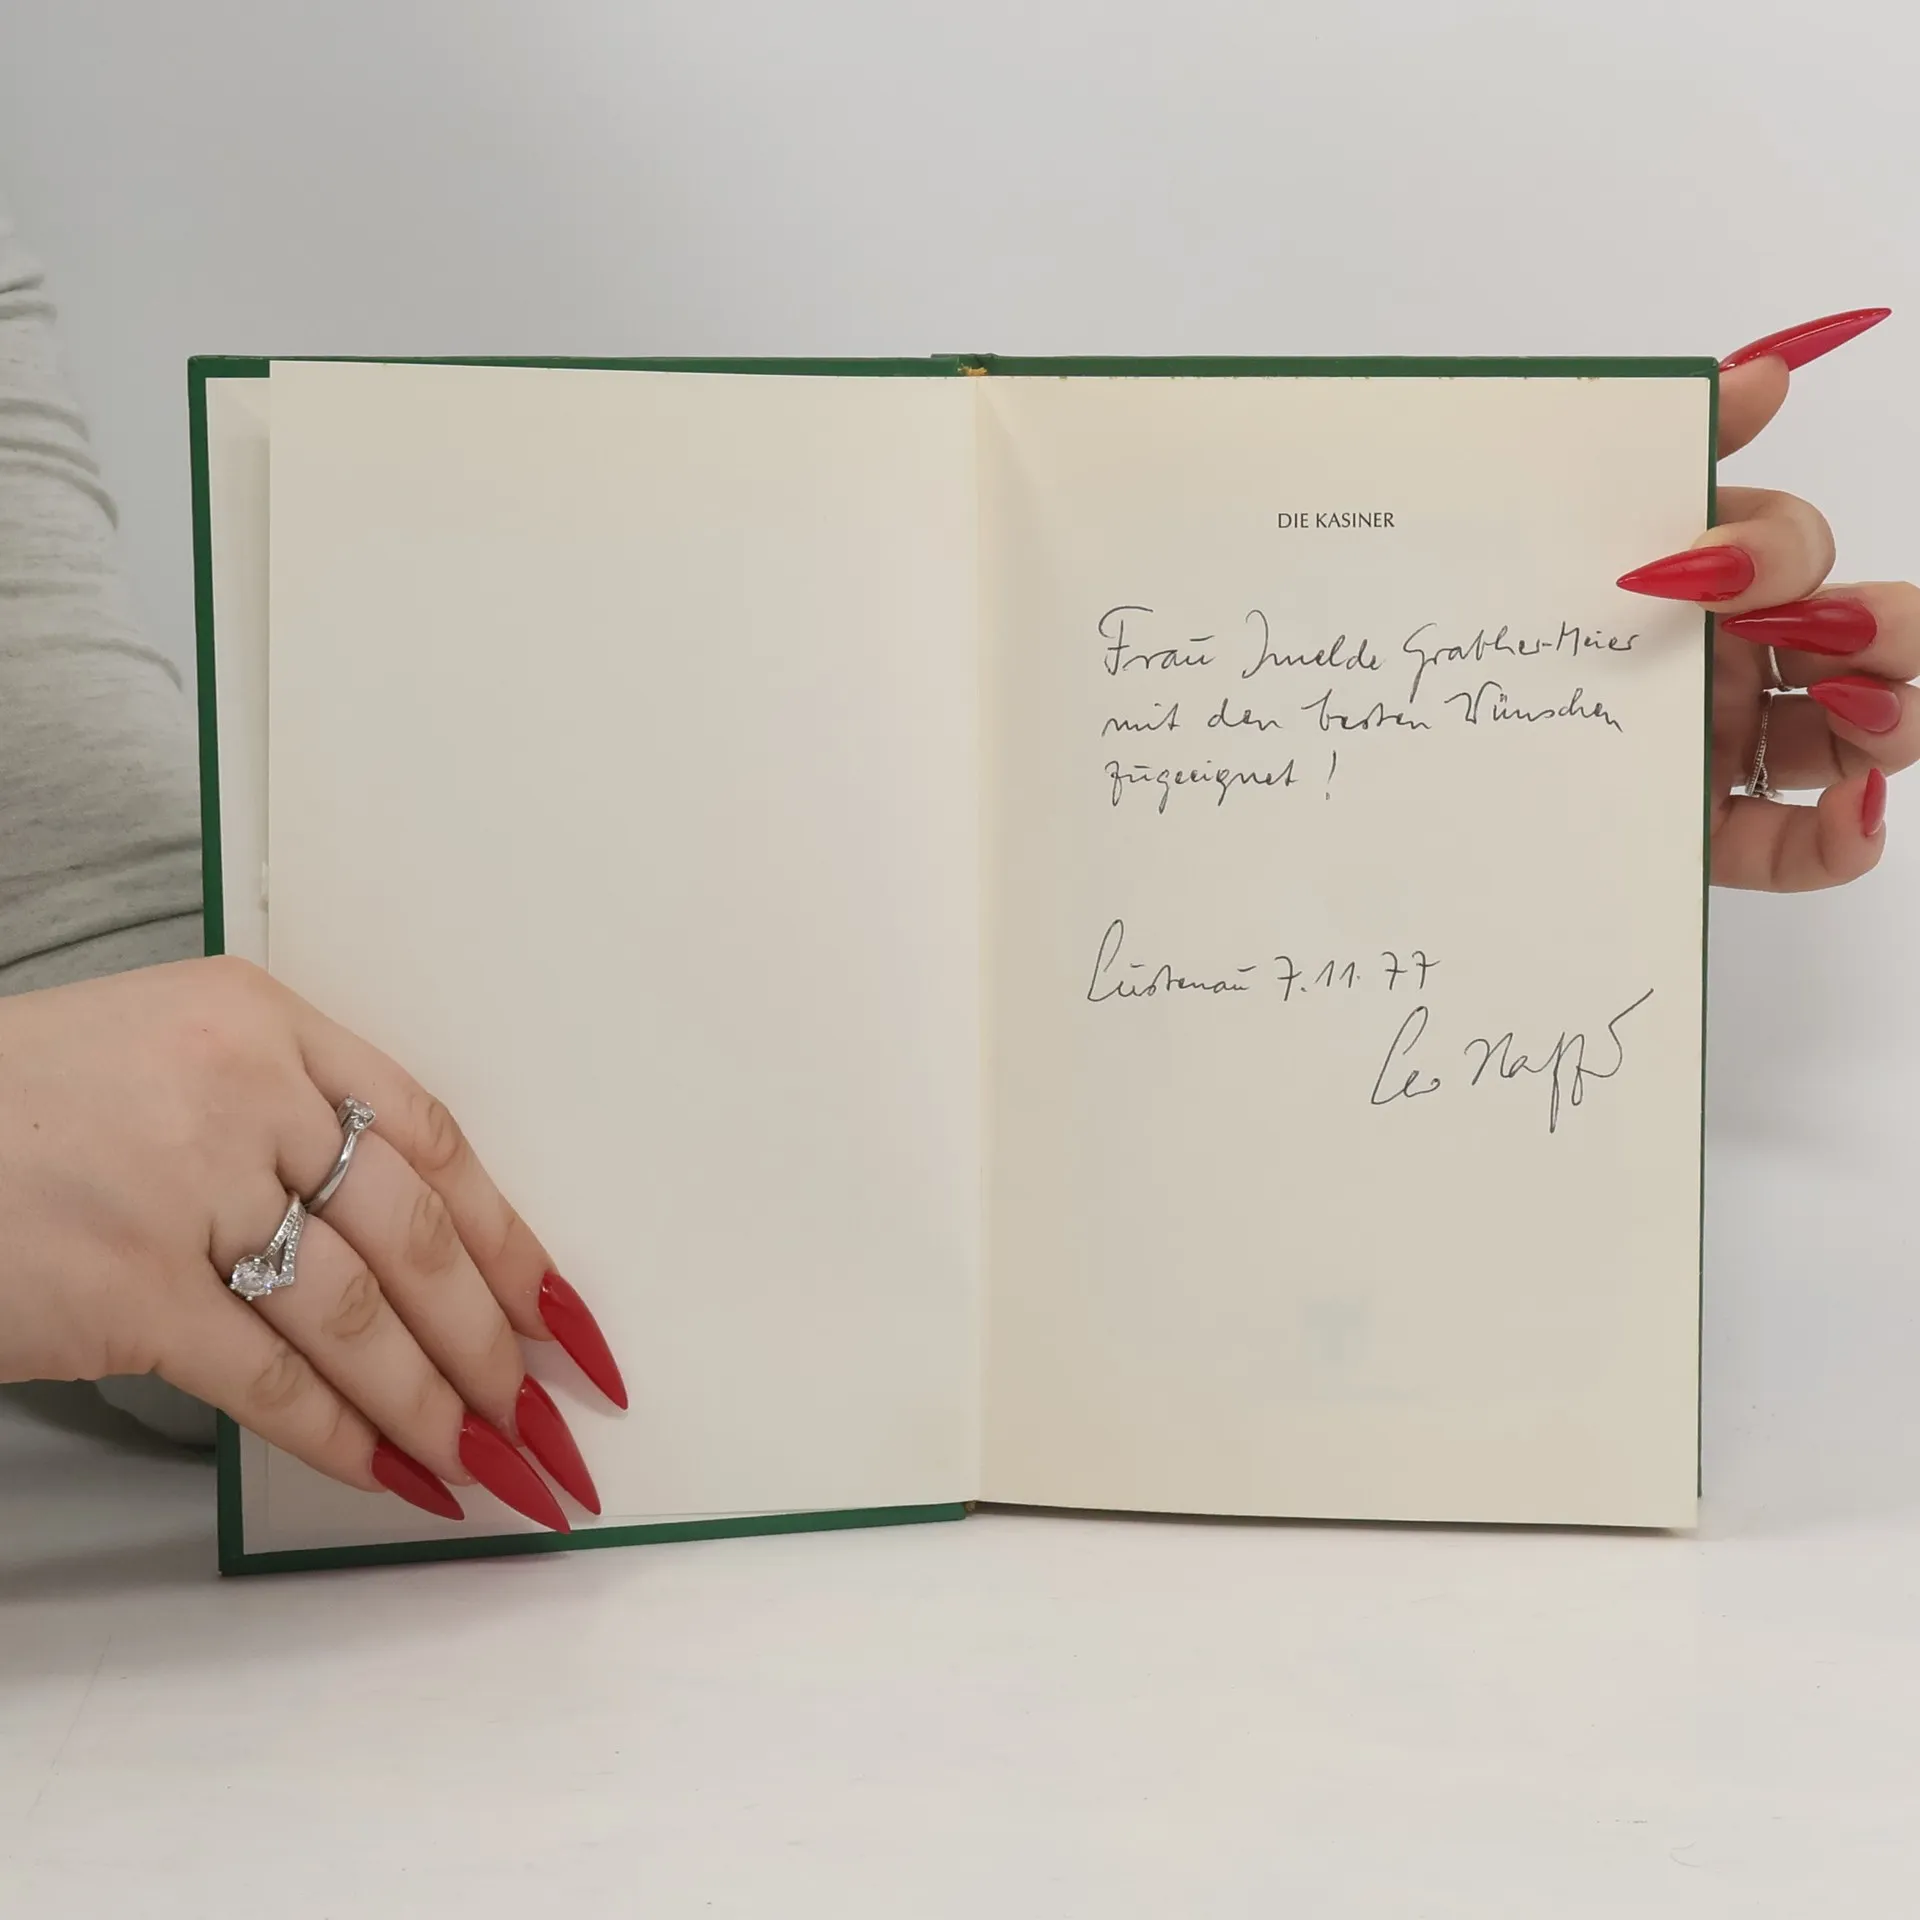 DIE KASINER
Frau Imelda Grabher-Meier
mit den besten Wünschen
zugeeignet!
Lustenau 7.11.77
Leo